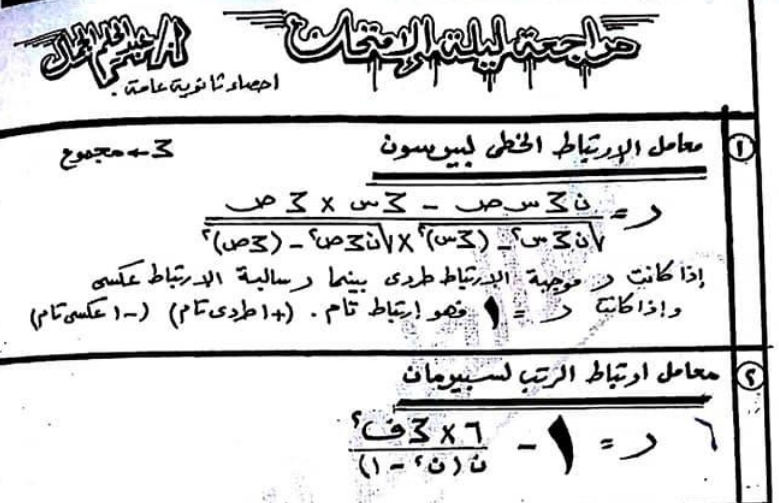 مراجعة ليلة الإمتحان
أ/ عبدالحليم الجمال
احصاء ثانوية عامة .
① معامل الإرتباط الخطى لبيرسون
Σ ← مجموع
ر = (ن Σ س ص - Σ س × Σ ص) / (√(ن Σ س² - (Σ س)²) × √(ن Σ ص² - (Σ ص)²))
إذا كانت ر موجبة الارتباط طردى بينما ر سالبة الارتباط عكسى
وإذا كانت ر = ١ فهو إرتباط تام . (+١ طردى تام) (-١ عكسى تام)
② معامل ارتباط الرتب لسبيرمان
ر = ١ - (٦ × Σ ف²) / (ن (ن² - ١))